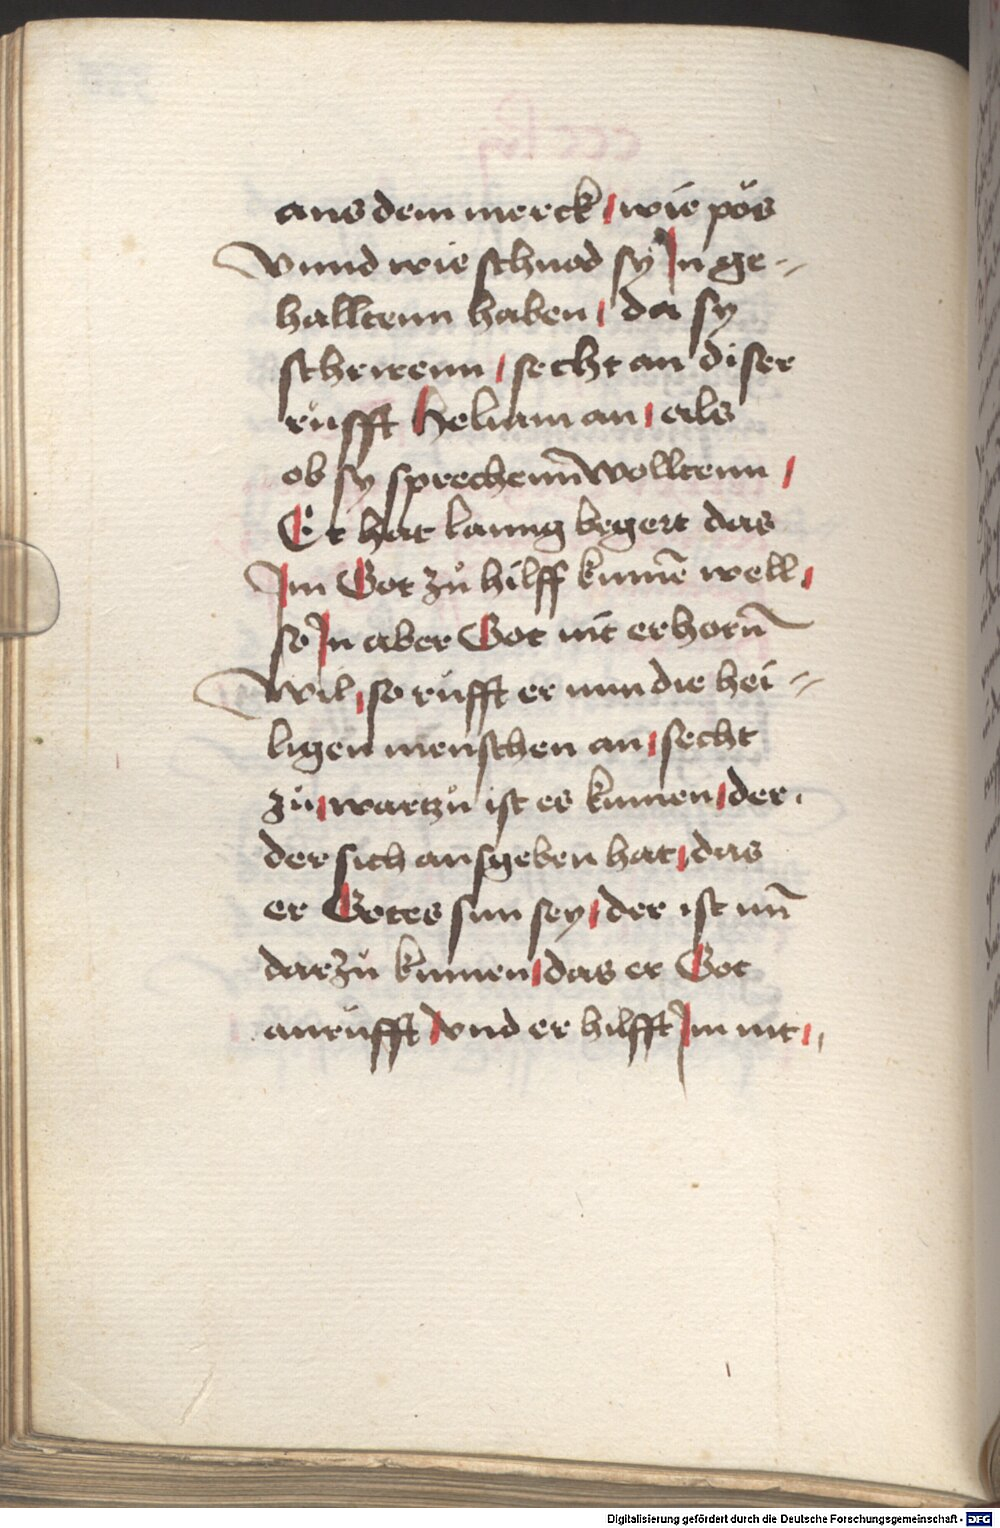 aus dem merck / wie pös
vnnd wie schnod sy Jn ge-
halltenn haben / da sy
schrirenn / secht an diser
rüfft Heliam an / als
ob sy sprechenn̄ wolltenn /
Er hat lanng begert das
Jm Got zů hilff kumē well /
so Jn aber Got nit erhorn̄
wil / so rüfft er nun die hei-
ligen menschen an / secht
zů / wartzů ist es kumen / der
der sich ausgeben hat / das
er Gotes sun sey / der ist nun̄
darzů kumen / das er Got
anrüfft / vnd er hilfft Jm nit /
Digitalisierung gefördert durch die Deutsche Forschungsgemeinschaft - DFG